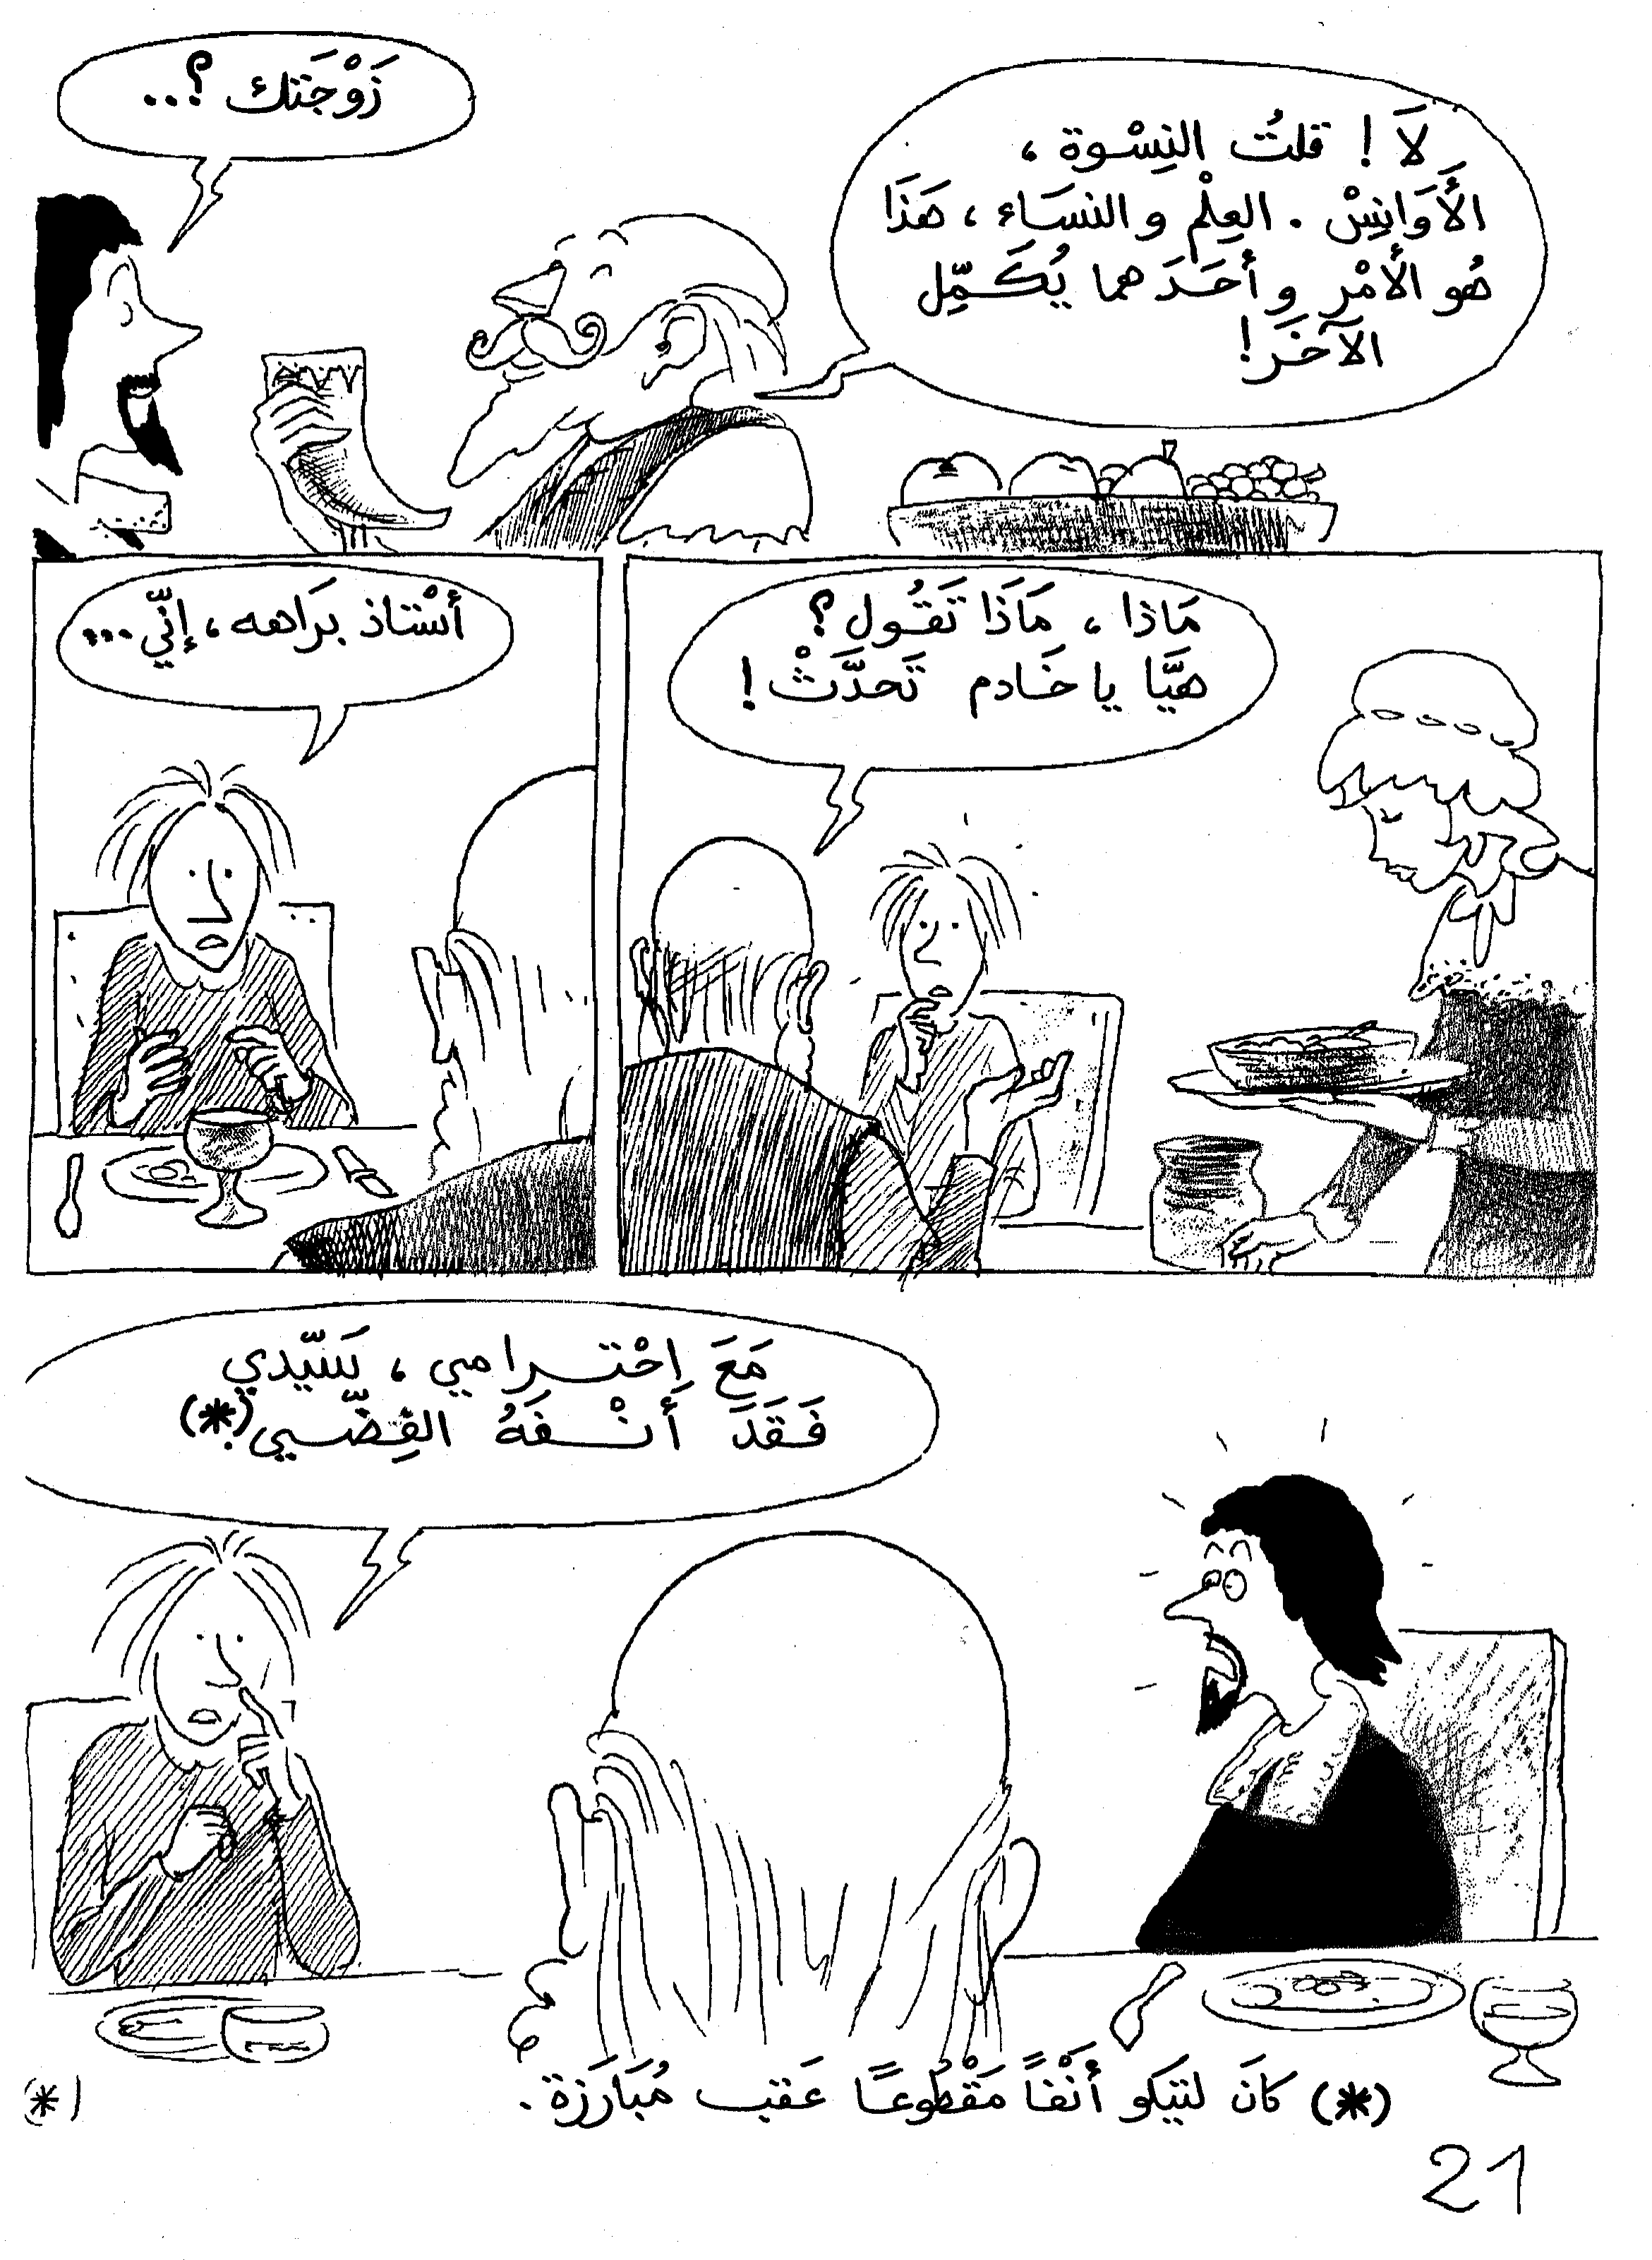 لاَ! قلتُ النِسْوة ،
الأَوَانِسْ . العِلْم والنسَاء ، هَذَا
هُو الأَمْر وأحَدَهما يُكَمِّل
الآخَر!
زَوْجَتك ؟..
مَاذا ، مَاذَا تَقُول ؟
هيَّا يا خَادم تَحدَّثْ !
أسْتاذ برَاهه ، إنِّي ...
مَعَ اِحْترامي ، سَيّدي
فَقَدَ أَنْفَهُ الفِضّي (*)
(*) كانَ لتيكو أنْفاً مَقْطُوعًا عَقب مُبَارَزة .
(*)
21